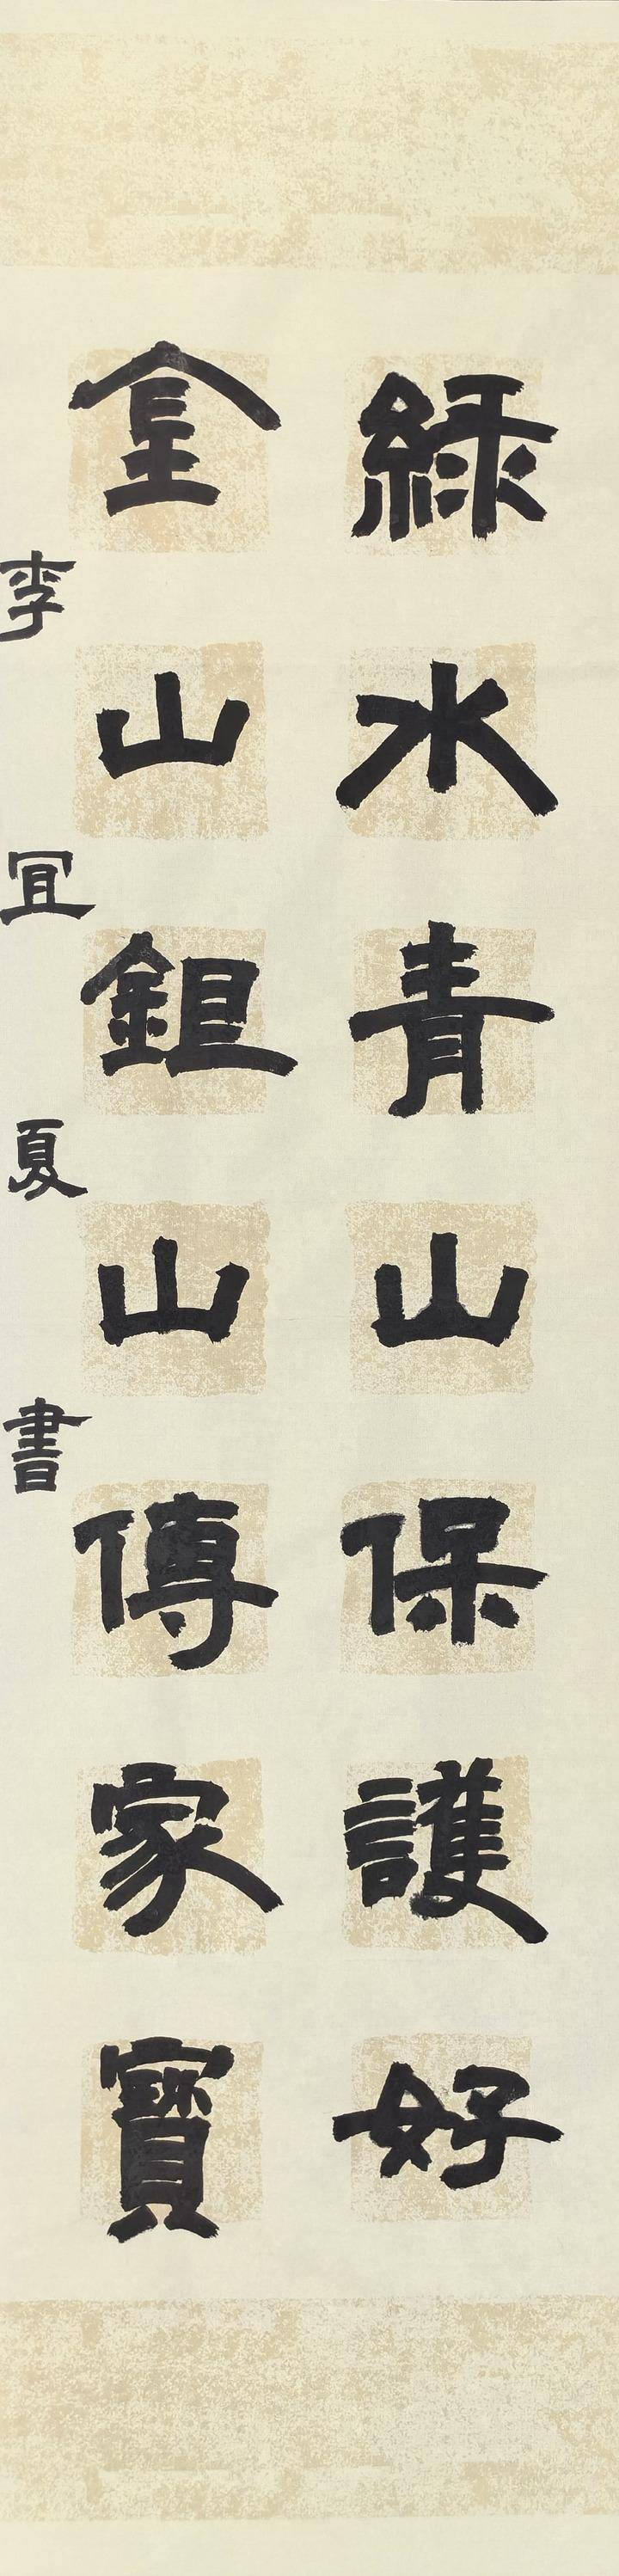 綠水青山保護好
金山鉏山傳家寶
李冝夏書